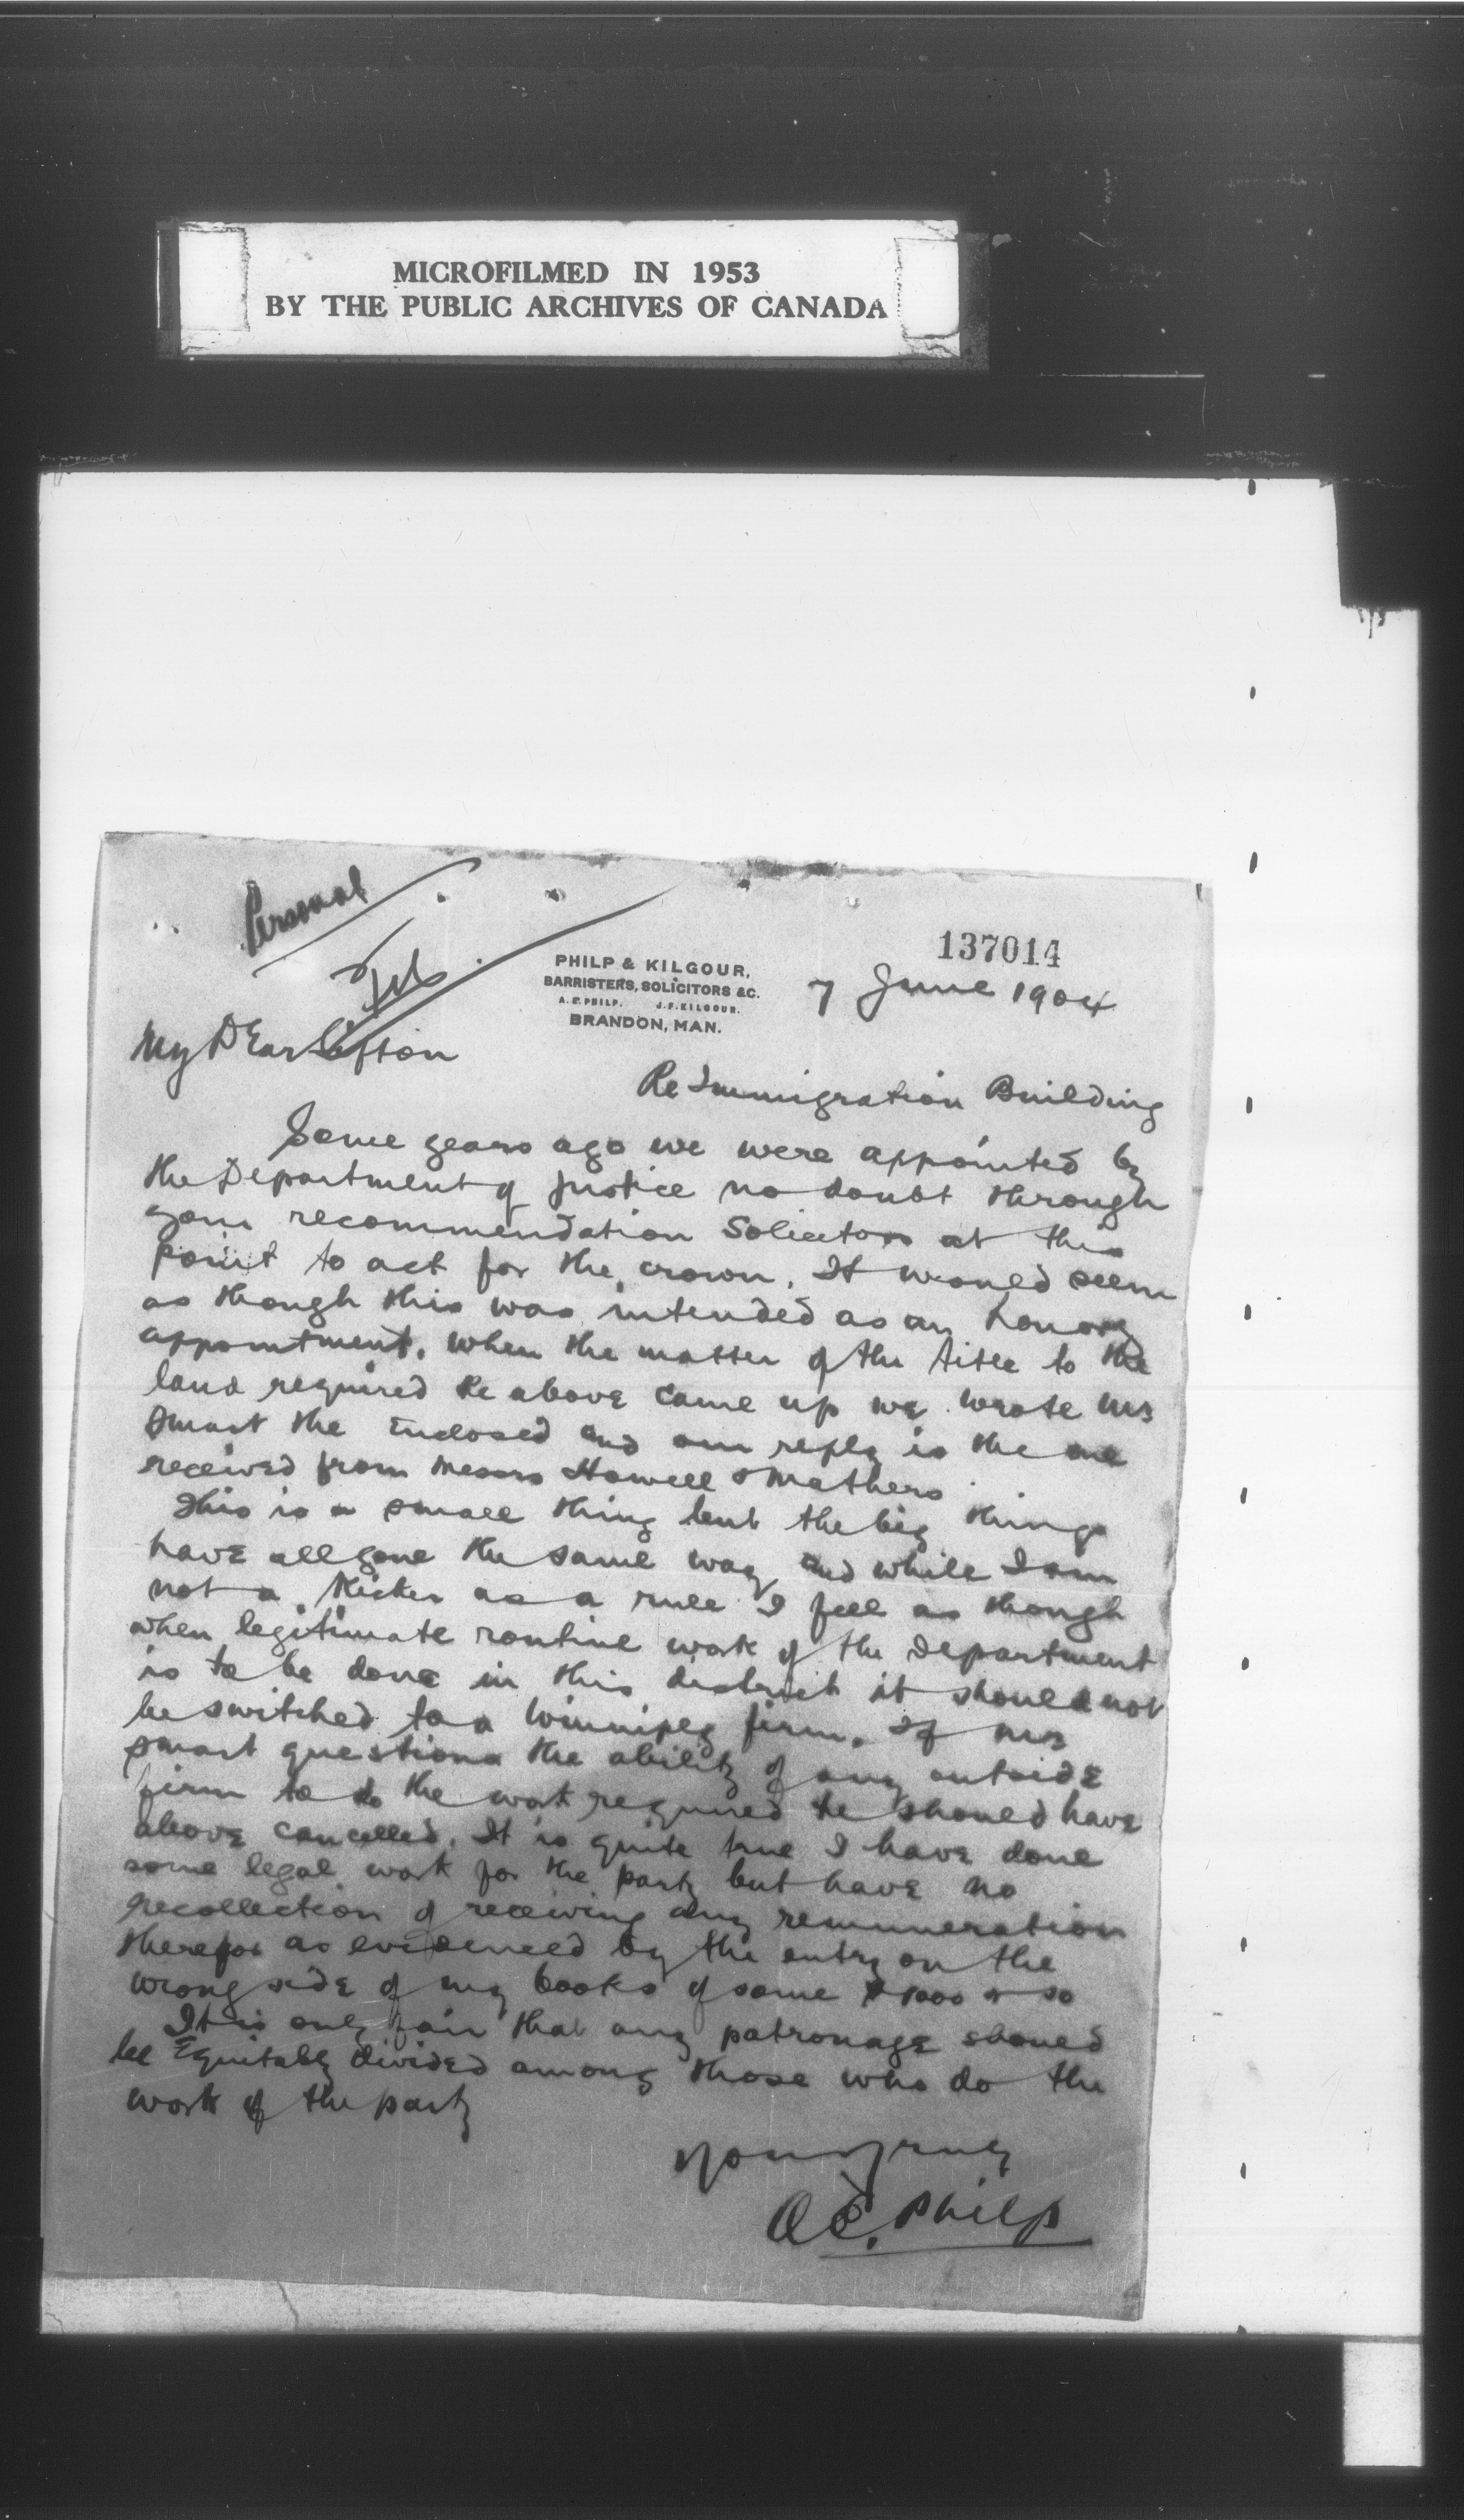 MICROFILMED IN 1953
BY THE PUBLIC ARCHIVES OF CANADA
Personal
137014
PHILP & KILGOUR,
BARRISTERS, SOLICITORS &C.
A. E. PHILP. J. F. KILGOUR.
BRANDON, MAN.
7 June 1904
My Dear Sifton
Re Immigration Building
Some years ago we were appointed by
the Department of Justice no doubt through
your recommendation Solicitors at this
point to act for the crown. It would seem
as though this was intended as an honory
appointment. When the matter of the title to the
land required Re above came up we wrote Mr
Smart the Enclosed and our reply is the one
received from Messrs Howell & Mathers
This is a small thing but the big things
have all gone the same way and while I am
not a Kicker as a rule I feel as though
when legitimate routine work of the Department
is to be done in this district it should not
be switched to a Winnipeg firm. If Mr
Smart questions the ability of any outside
firm to do the work required he should have
above cancelled. It is quite true I have done
some legal work for the party but have no
recollection of receiving any remuneration
therefor as evidenced by the entry on the
wrong side of my books of some $1000 or so
It is only fair that any patronage should
be Equitably divided among those who do the
work of the party
Yours truly
A. E. Philp